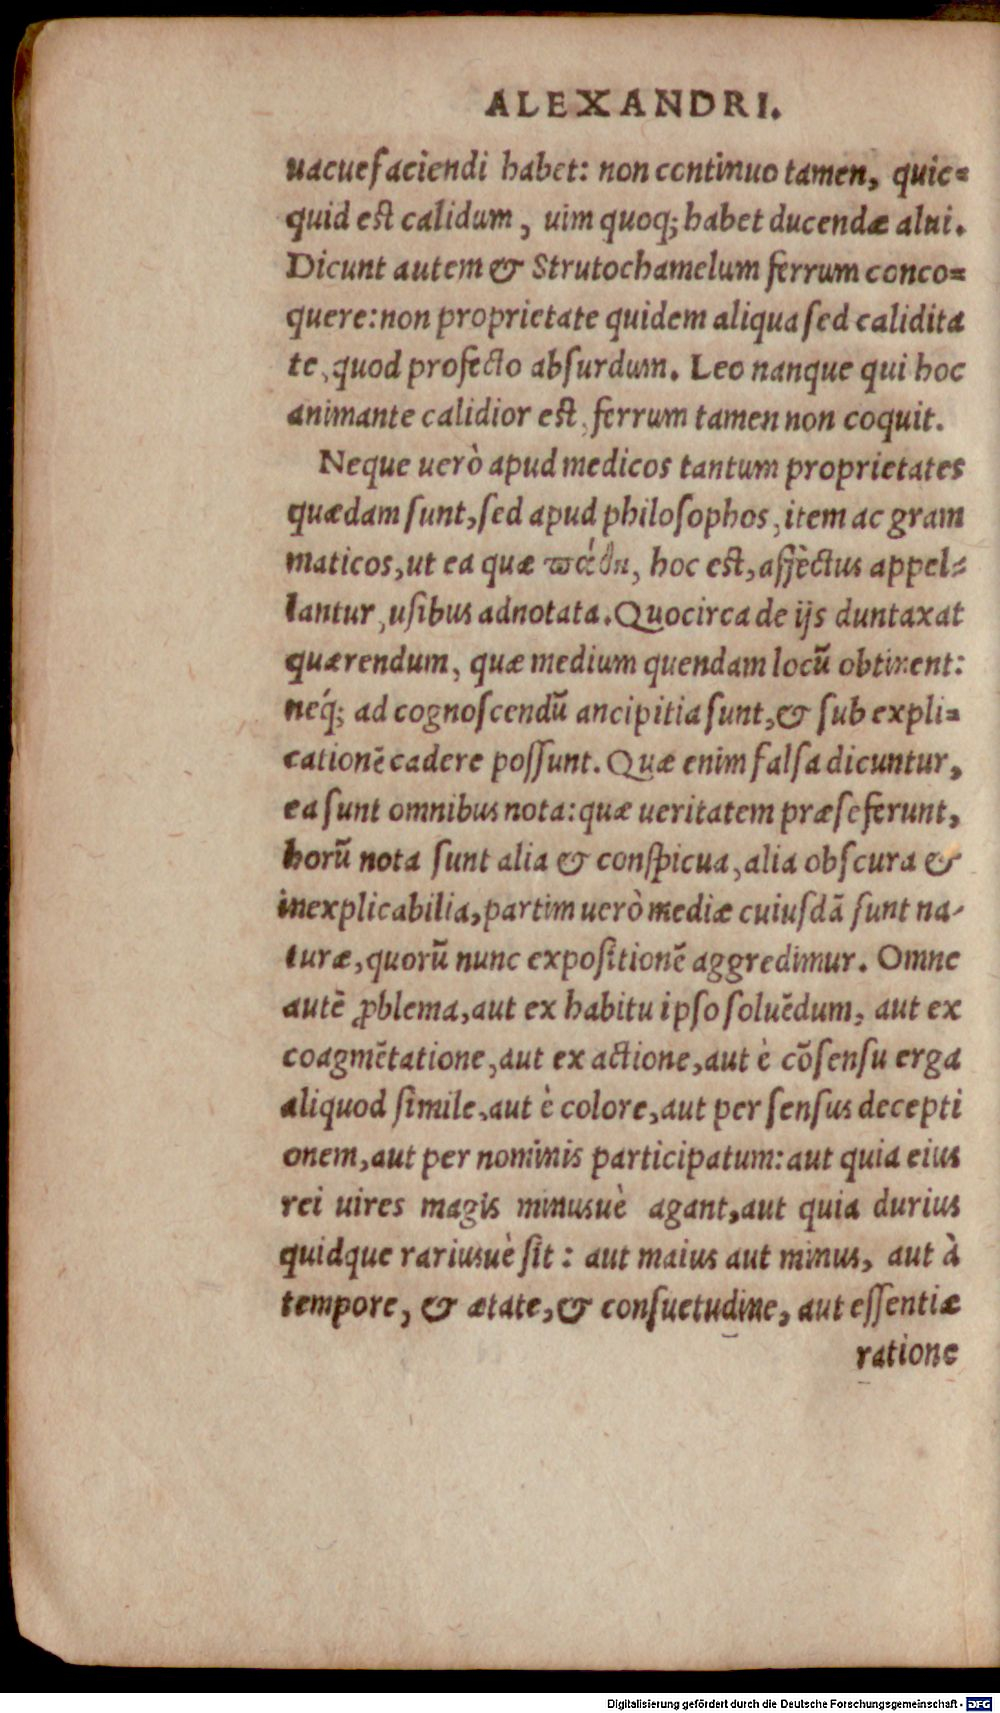 ALEXANDRI.
uacuefaciendi habet: non continuo tamen, quic=
quid est calidum, uim quoq; habet ducendæ alui.
Dicunt autem & Strutochamelum ferrum conco=
quere: non proprietate quidem aliqua sed calidita
te, quod profecto absurdum. Leo nanque qui hoc
animante calidior est, ferrum tamen non coquit.
Neque uerò apud medicos tantum proprietates
quædam sunt, sed apud philosophos, item ac gram
maticos, ut ea quæ πάθη, hoc est, affectus appel=
lantur, usibus adnotata. Quocirca de ijs duntaxat
quærendum, quæ medium quendam locū obtinent:
neq́; ad cognoscendū ancipitia sunt, & sub expli=
cationē cadere possunt. Quæ enim falsa dicuntur,
ea sunt omnibus nota: quæ ueritatem præseferunt,
horū nota sunt alia & conspicua, alia obscura &
inexplicabilia, partim uerò mediæ cuiusdā sunt na-
turæ, quorū nunc expositionē aggredimur. Omne
autē ꝓblema, aut ex habitu ipso soluēdum, aut ex
coagmētatione, aut ex actione, aut è cōsensu erga
aliquod simile, aut è colore, aut per sensus decepti
onem, aut per nominis participatum: aut quia eius
rei uires magis minusuè agant, aut quia durius
quidque rariusuè sit: aut maius aut minus, aut à
tempore, & ætate, & consuetudine, aut essentiæ
ratione
Digitalisierung gefördert durch die Deutsche Forschungsgemeinschaft - DFG